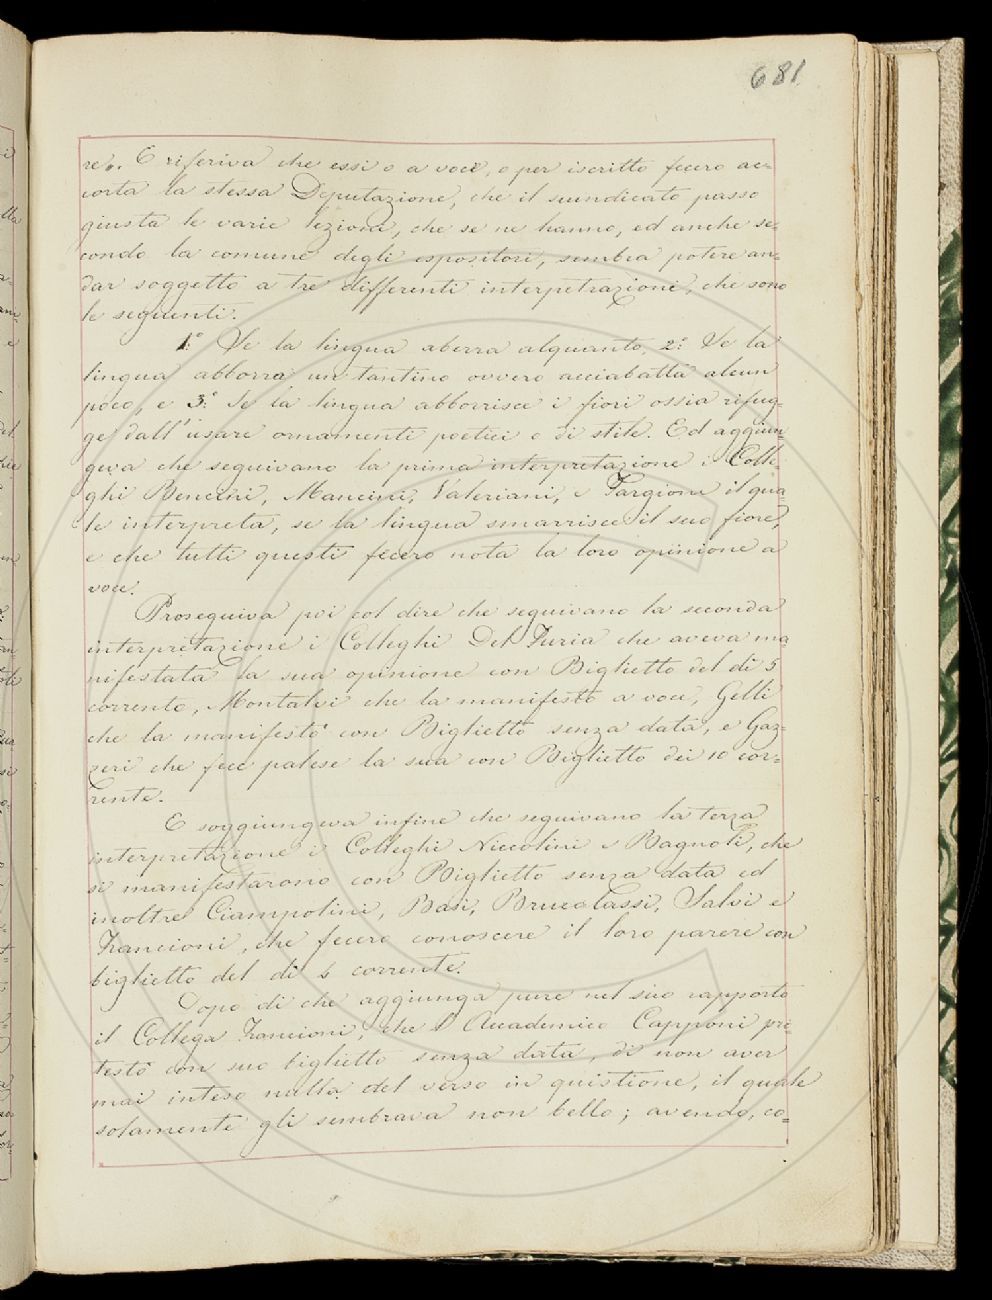 681
re. E riferiva che essi o a voce, o per iscritto fecero ac=
corta la stessa Deputazione, che il suindicato passo
giusta le varie lezioni, che se ne hanno, ed anche se=
condo la comune degli espositori, sembra potere an=
dar soggetto a tre differenti interpetrazioni, che sono
le seguenti.
1.° Se la lingua aberra alquanto 2.° Se la
lingua abborra un tantino ovvero acciabatta alcun
poco, e 3.° Se la lingua abborrisce i fiori ossia rifug=
ge dall'usare ornamenti poetici o di stile. Ed aggiun=
geva che seguivano la prima interpretazione i Colle=
ghi Bencini, Mancini, Valeriani, e Targioni il qua=
le interpreta, se la lingua smarrisce il suo fiore,
e che tutti questi fecero nota la loro opinione a
voce.
Proseguiva poi col dire che seguivano la seconda
interpretazione i Colleghi Del Furia che aveva ma=
nifestata la sua opinione con Biglietto del dì 5
corrente, Montalvi che la manifestò a voce, Gelli
che la manifestò con Biglietto senza data, e Gaz=
zeri che fece palese la sua con Biglietto dei 10 cor=
rente.
E soggiungeva infine che seguivano la terza
interpretazione i Colleghi Niccolini e Bagnoli, che
si manifestarono con Biglietto senza data ed
inoltre Ciampolini, Basi, Brucalassi, Salvi e
Francioni, che fecero conoscere il loro parere con
biglietto del dì 4 corrente.
Dopo di che aggiunga pure nel suo rapporto
il Collega Francioni, che l'Accademico Capponi pro
testò con suo biglietto senza data, di non aver
mai inteso nulla del verso in quistione, il quale
solamente gli sembrava non bello; avendo, co=